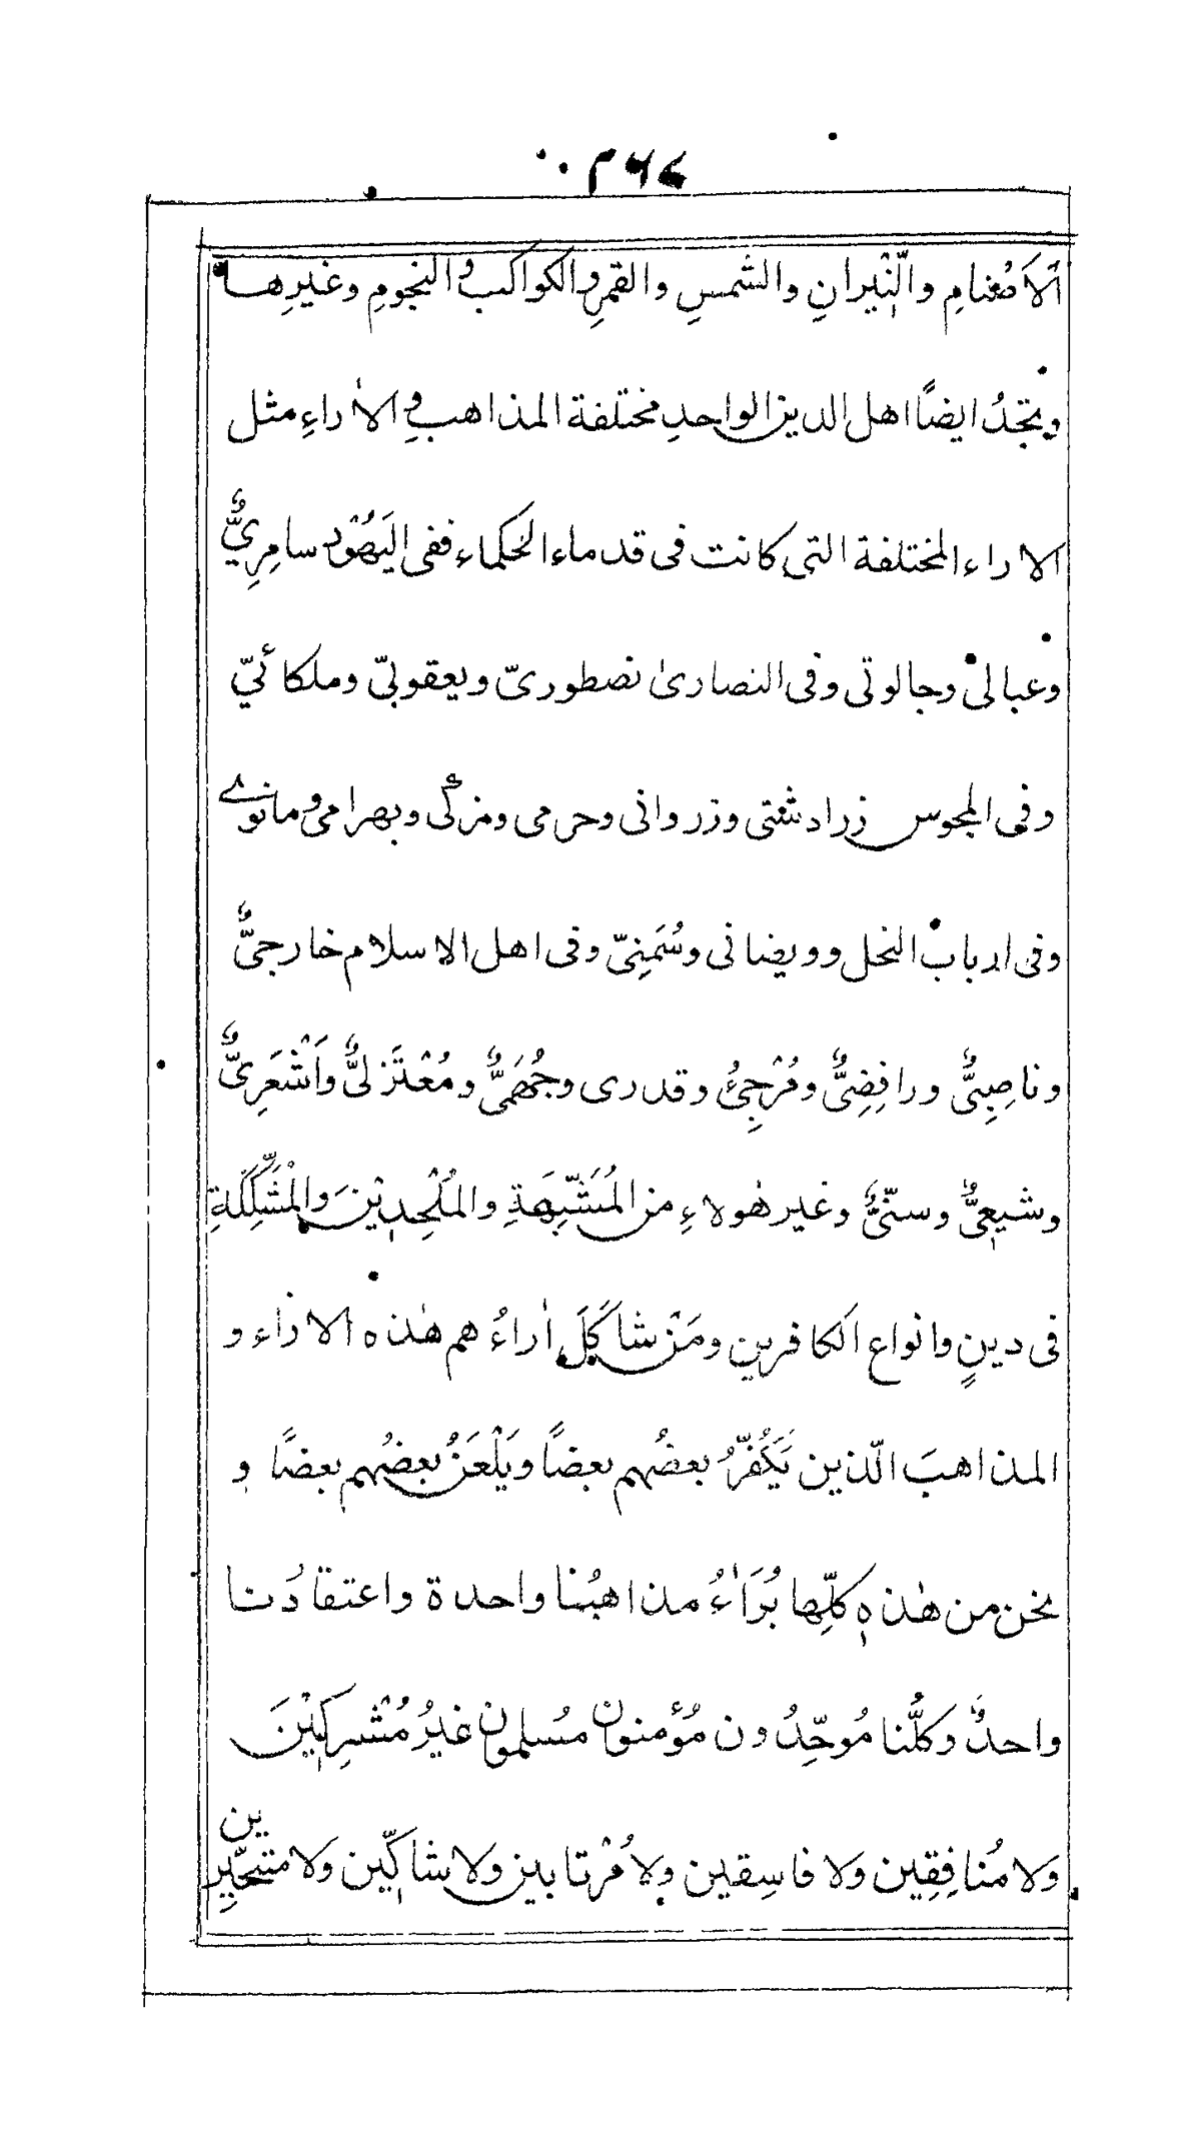 اَلاَصْنامِ والنِّيْرانِ والشمسِ والقمرِ والكواكب والنجومِ وغيرِها
وتجدُ ايضًا اهل الدين الواحدِ مختلفة المذاهبِ والاٰراءِ مثل
الاراء المختلفة التى كانت فى قدماء الحُكماء ففى اليَهُوْد سامِرِيٌّ
وعبالىْ وجالوتى وفى النصارىٰ نصطورىّ ويعقوبىّ وملكائىّ
وفى المجوس زرادشتى وزروانى وحرمى ومزكى وبهرامى ومانوے
وفى ارباب النحل وويضانى وسُمَنِىّ وفى اهل الاسلام خارجىٌّ
وناصِبِىٌّ ورافِضِىٌّ ومُرْجِئُ وقدرى وجُهَمِىٌّ ومُعْتَزلىٌّ وَاَشْعَرِىٌّ
وشيعِىٌّ وسنّىٌّ وغير هٰولاءِ من المُشَبِّهَةِ والمُلْحِدِيْنَ والمُشَكِّكَةِ
فى دينٍ وانواع الكافرين ومَنْ شاكَلَ اٰراءُ هم هٰذه الاراء و
المذاهبَ الّذين يَكُفِّرُ بعضُهم بعضًا ويَلْعَنُ بعضُهم بعضًا و
نحن من هٰذه كلِّها بُرَاٰءُ مذاهبُنا واحدة واعتقادُنا
واحدٌ وكلُّنا مُوحِّدُون مُؤمنون مُسلمون غيرُ مُشْرِكِيْنَ
وَلا مُنافِقِين وَلا فاسِقين وِلا مُرْتابين ولا شاكِّين وَلا متحيِّرين